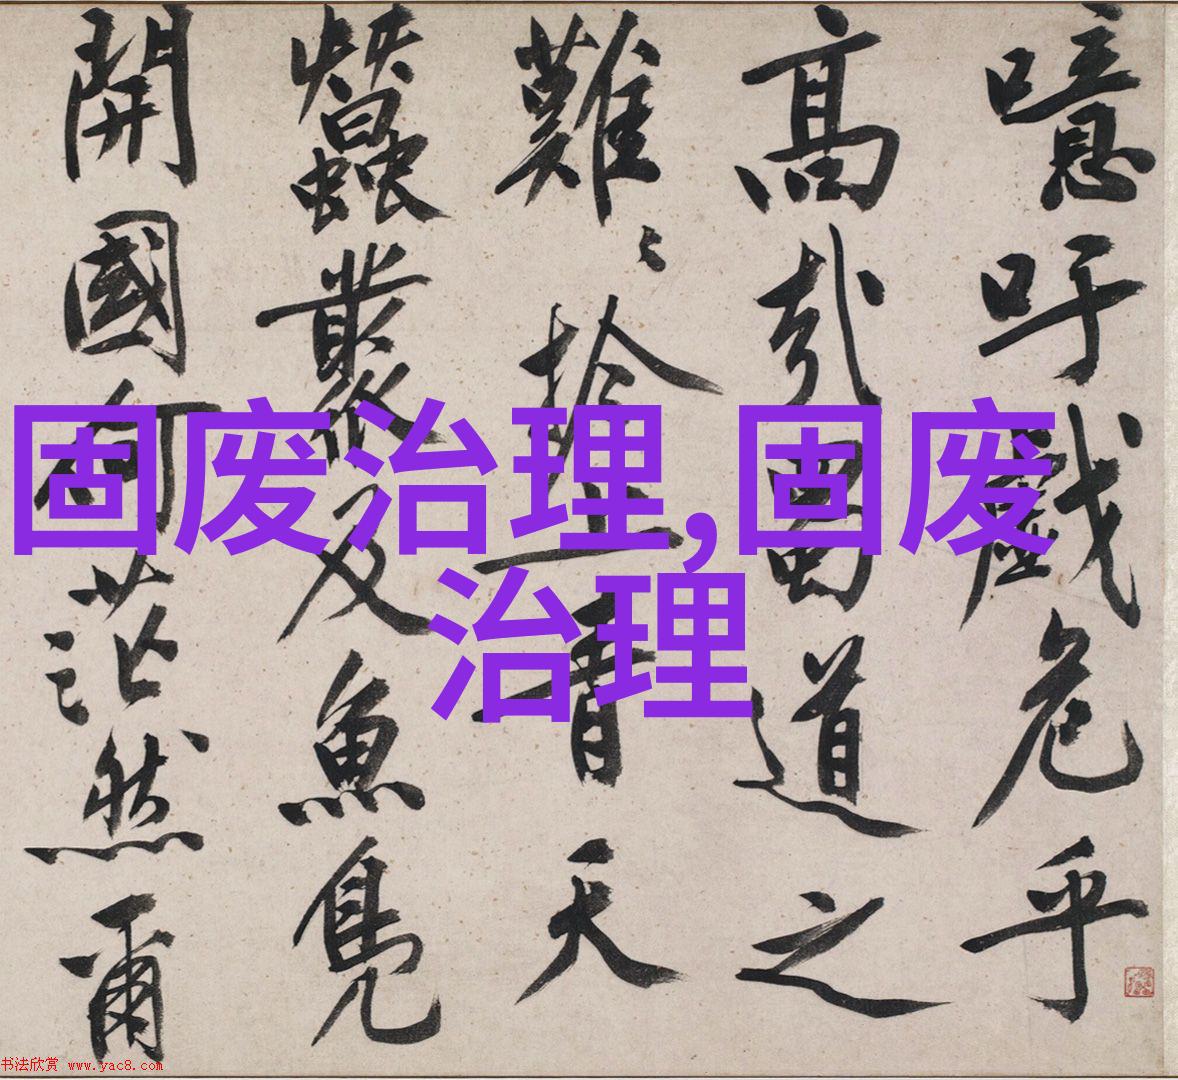 噫吁戲危乎
高哉蜀道之
難〻於上青天
蠶叢及魚鳧
開國何茫然爾
固废治理,固废
治理
书法欣赏 www.yac8.com